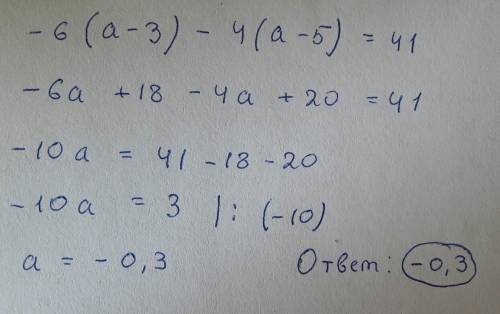 -6(a-3) - 4(a-5) = 41
-6a +18 - 4a +20 = 41
-10a = 41 -18 -20
-10a = 3 |: (-10)
a = -0,3 Ответ: -0,3